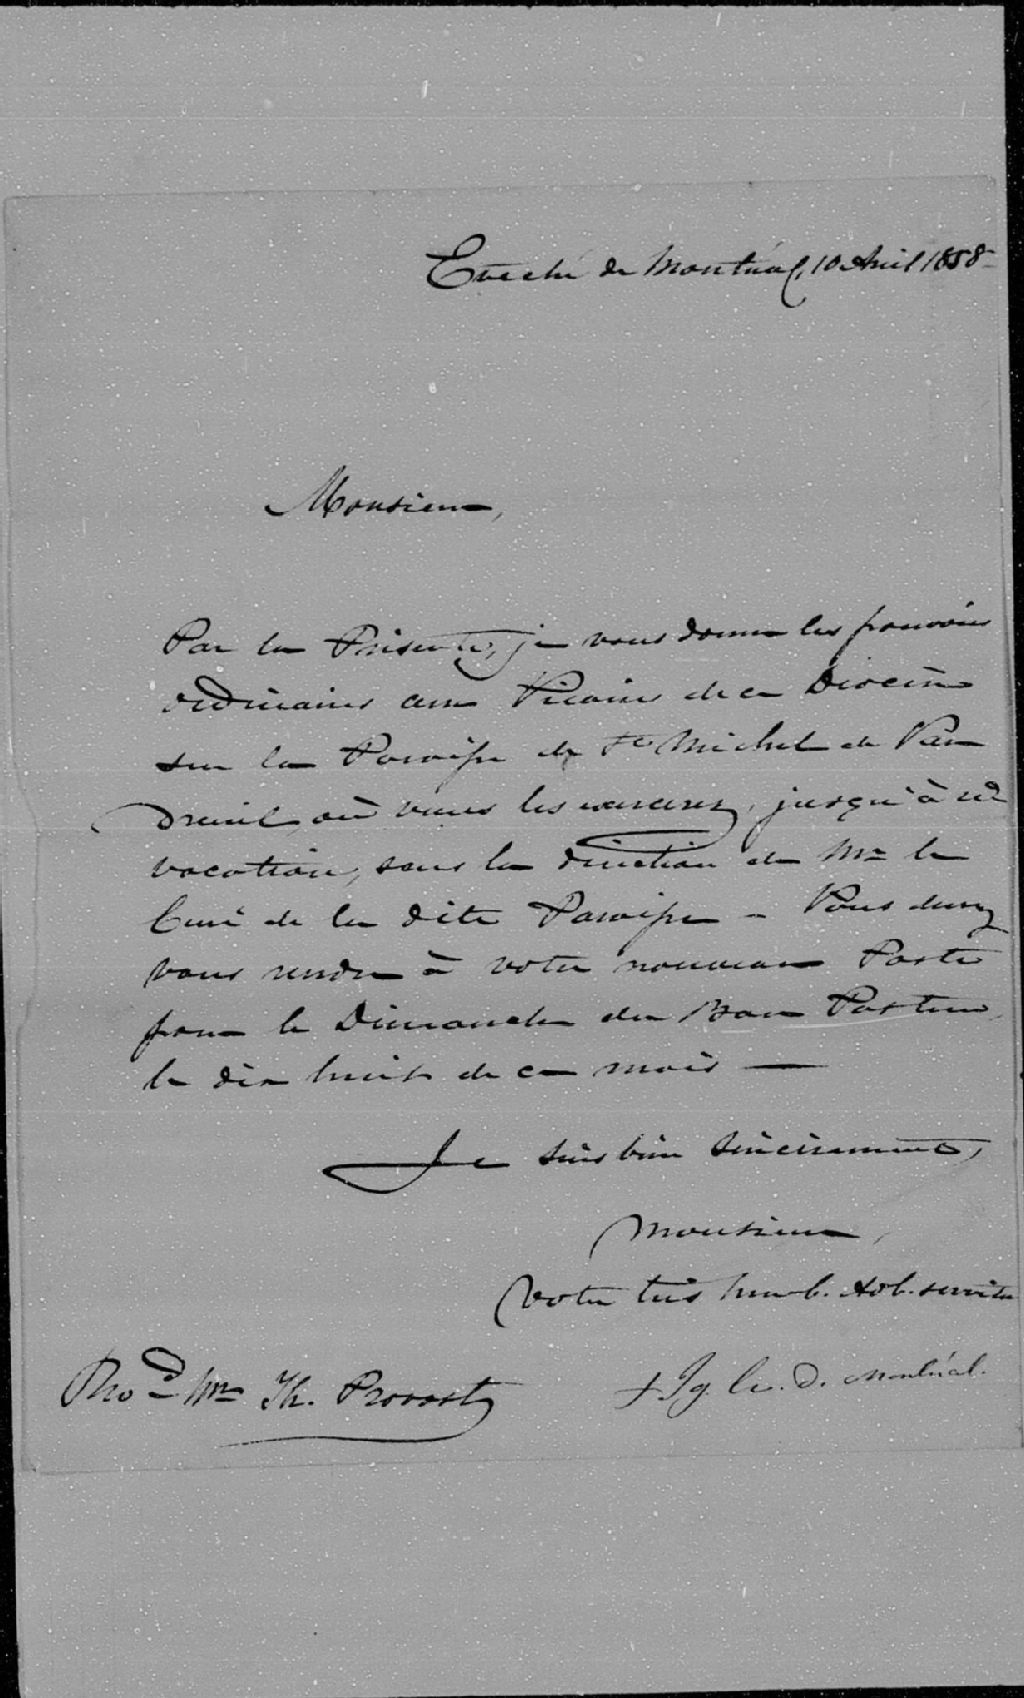 Evêché de Montréal, 10 Avril 1858
Monsieur,
Par la Présente, je vous donne les pouvoirs
ordinaires aux Vicaires de ce Diocèse
sur la Paroisse de St Michel de Vau
dreuil, où vous les exercerez, jusqu'à ré
vocation, sous la direction de Mr le
Curé de la dite Paroisse - Vous devrez
vous rendre à votre nouveau Poste
pour le Dimanche du Bon Pasteur,
le dix huit de ce mois —
Je suis bien sincèrement,
Monsieur,
Votre très humb. & ob. servite
+ Ig. Ev. D. Montréal.
Mr Th. Provost